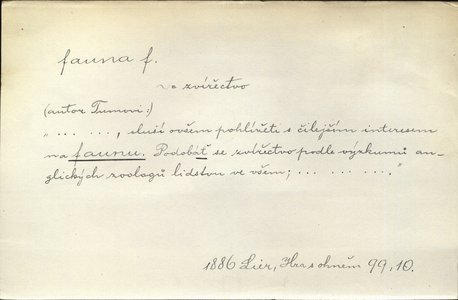 fauna f.
zvířectvo
(autor Tumovi:)
„... ..., sluší ovšem pohlížeti s čilejším interesem
na faunu. Podobáť se zvířectvo podle výzkumů an-
glických zoologů lidstvu ve všem; ... ... ...."
1886 Lier, Hra s ohněm 99, 10.